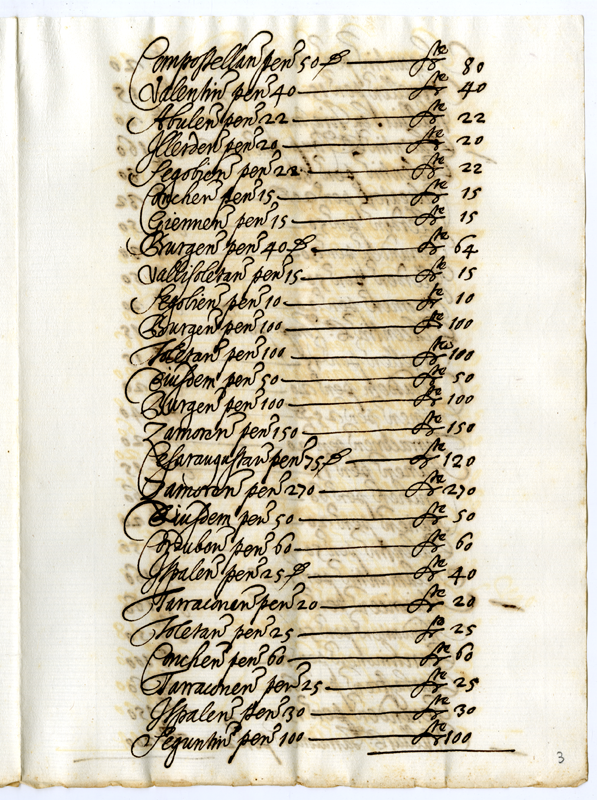 Compostellan̄ pen̄ 50 ₽ — 80
Valentin̄ pen̄ 40 — 40
Abulen̄ pen̄ 22 — 22
Jllerden̄ pen̄ 20 — 20
Segobien̄ pen̄ 22 — 22
Conchen̄ pen̄ 15 — 15
Giennen̄ pen̄ 15 — 15
Burgen̄ pen̄ 40 ₽ — 64
Vallisoletan̄ pen̄ 15 — 15
Segobien̄ pen̄ 10 — 10
Burgen̄ pen̄ 100 — 100
Toletan̄ pen̄ 100 — 100
Eiusdem pen̄ 50 — 50
Burgen̄ pen̄ 100 — 100
Zamoren̄ pen̄ 150 — 150
Cesaraugustan̄ pen̄ 75 ₽ — 120
Zamoren̄ pen̄ 270 — 270
Eiusdem pen̄ 50 — 50
Corduben̄ pen̄ 60 — 60
Jspalen̄ pen̄ 25 ₽ — 40
Tarraconan̄ pen̄ 20 — 20
Toletan̄ pen̄ 25 — 25
Conchen̄ pen̄ 60 — 60
Tarraconen̄ pen̄ 25 — 25
Jspalen̄ pen̄ 30 — 30
Seguntin̄ pen̄ 100 — 100
3